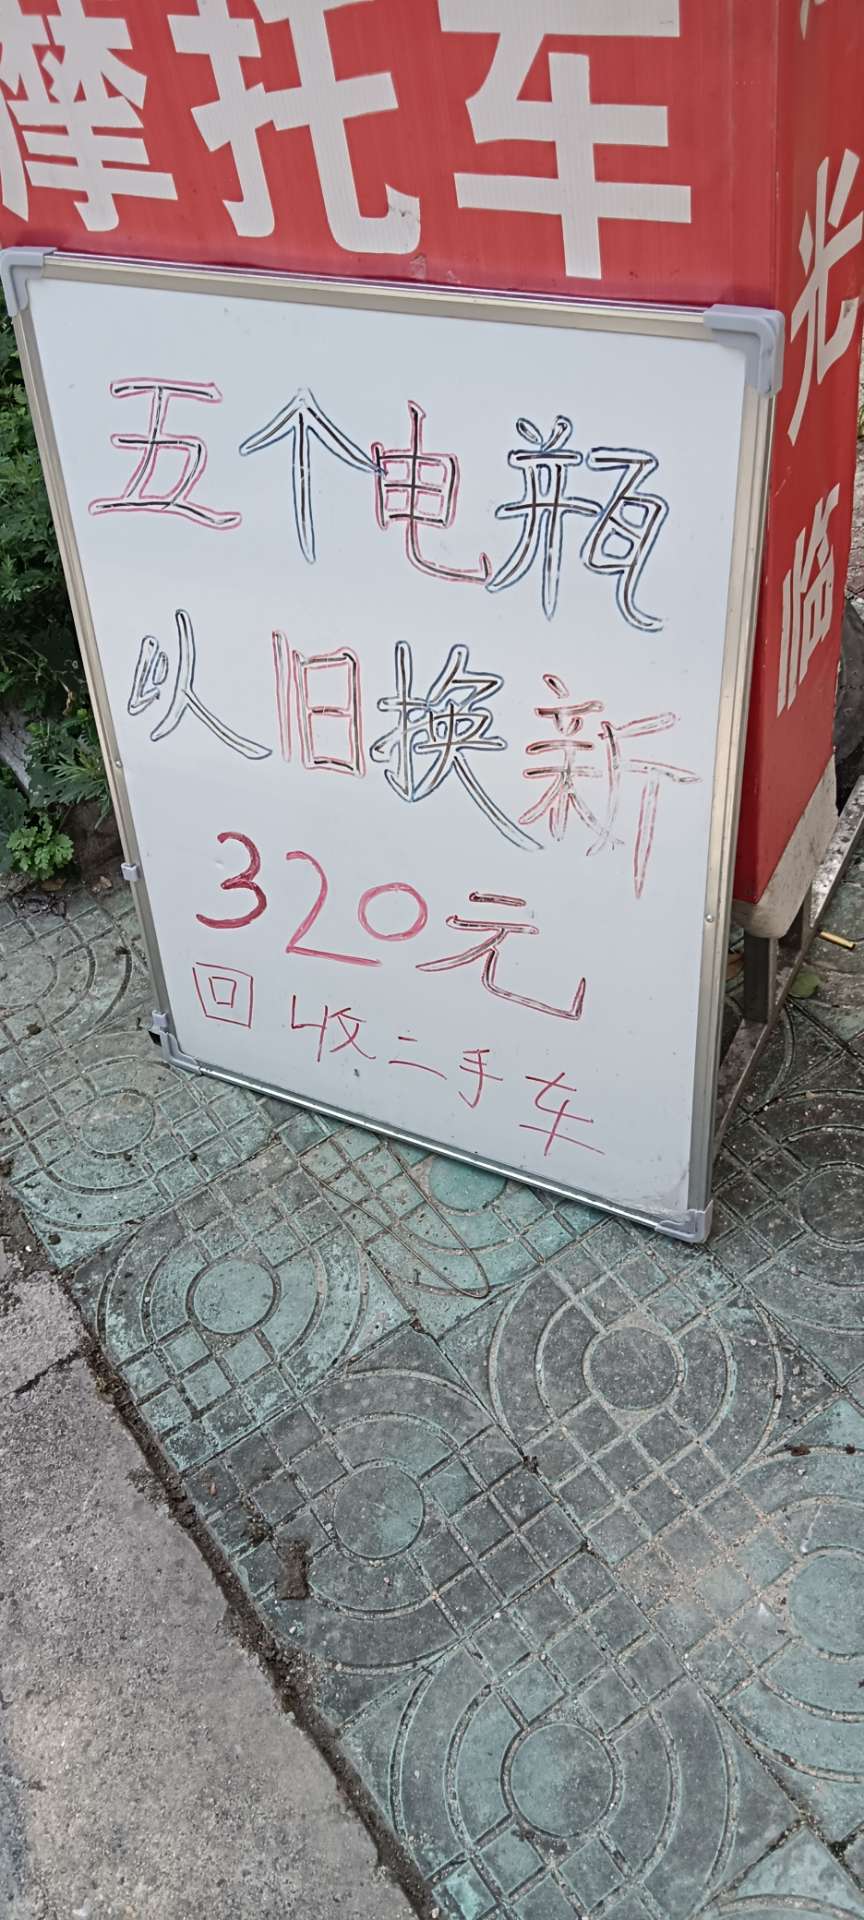 摩托车
光临
五个电瓶
以旧换新
320元
回收二手车